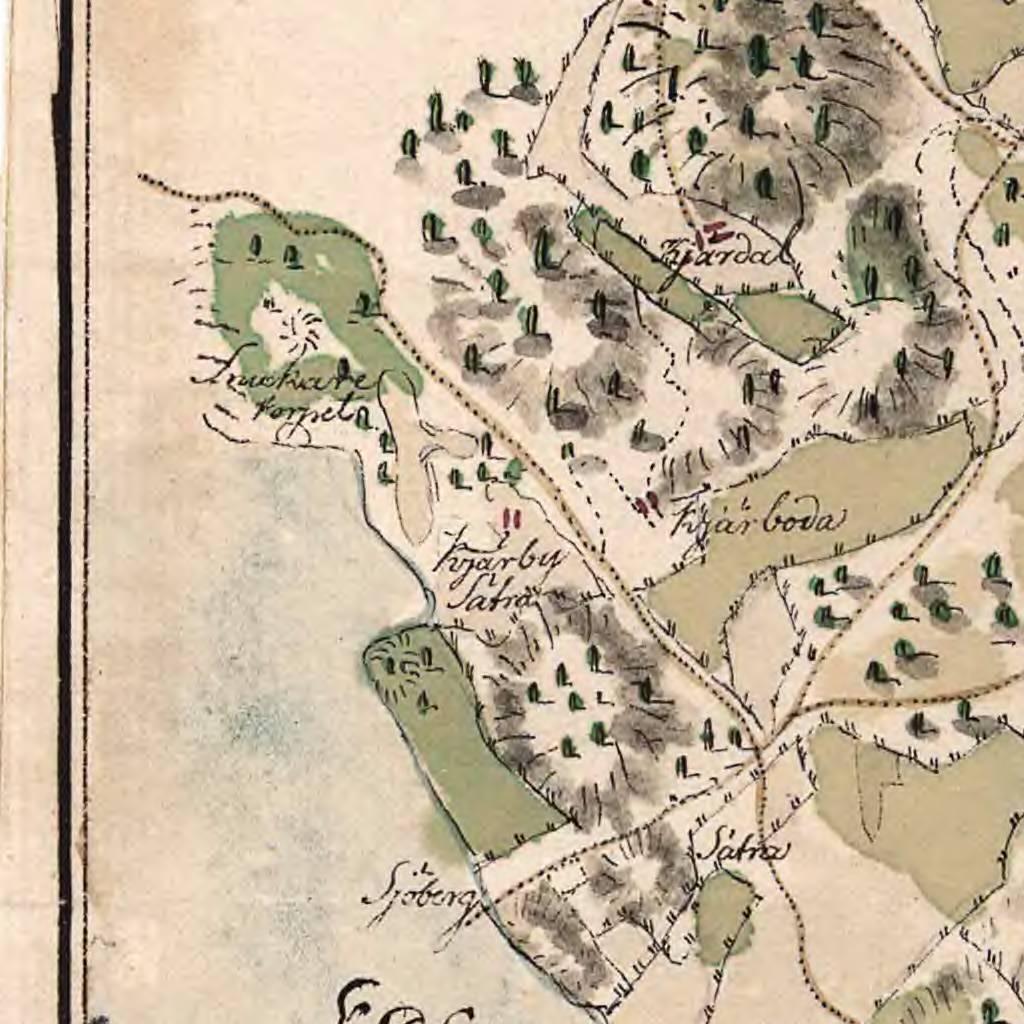 Kjärda
Snickare
torpet
Kjärboda
Kjärby
Sätra
Sätra
Sjöberg